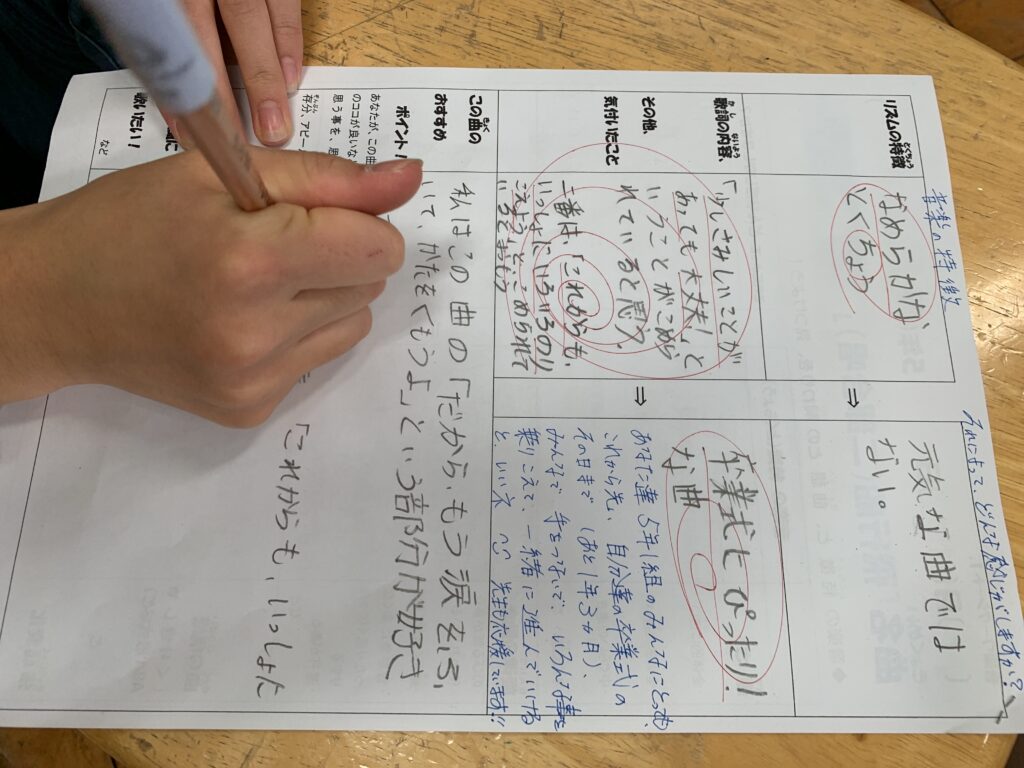 音楽の特徴
それによって、どんな感じがしますか？
リズムの特徴
とくちょう
なめらかな、
とくちょう
⇒
元気な曲では
ない。
歌詞の内容、
かし ないよう
その他、
気付いたこと
「少しさみしいことが
あっても大丈夫！」と
いうことがこめら
れていると思う。
二番は、「これからも、
いっしょにいろいろのり
こえよう」とこめられて
いると思う
⇒
卒業式にぴったり！
な曲
あなた達 5年1組のみんなにとっても、
これから先、自分達の卒業式の
その日まで（あと1年3カ月）、
みんなで、手をつないで、いろんな事を
乗りこえて、一緒に進んでいける
と、いいネ 先生も応援しています!!
この曲の
きょく
おすすめ
ポイント！
あなたが、この曲
のココが良いな
思う事を、思
存分、アピー
ぞんぶん
歌いたい！
など
私はこの曲の「だから、もう涙をふ
いて、かたをくもうよ」という部分が好き
「これからも、いっしょに